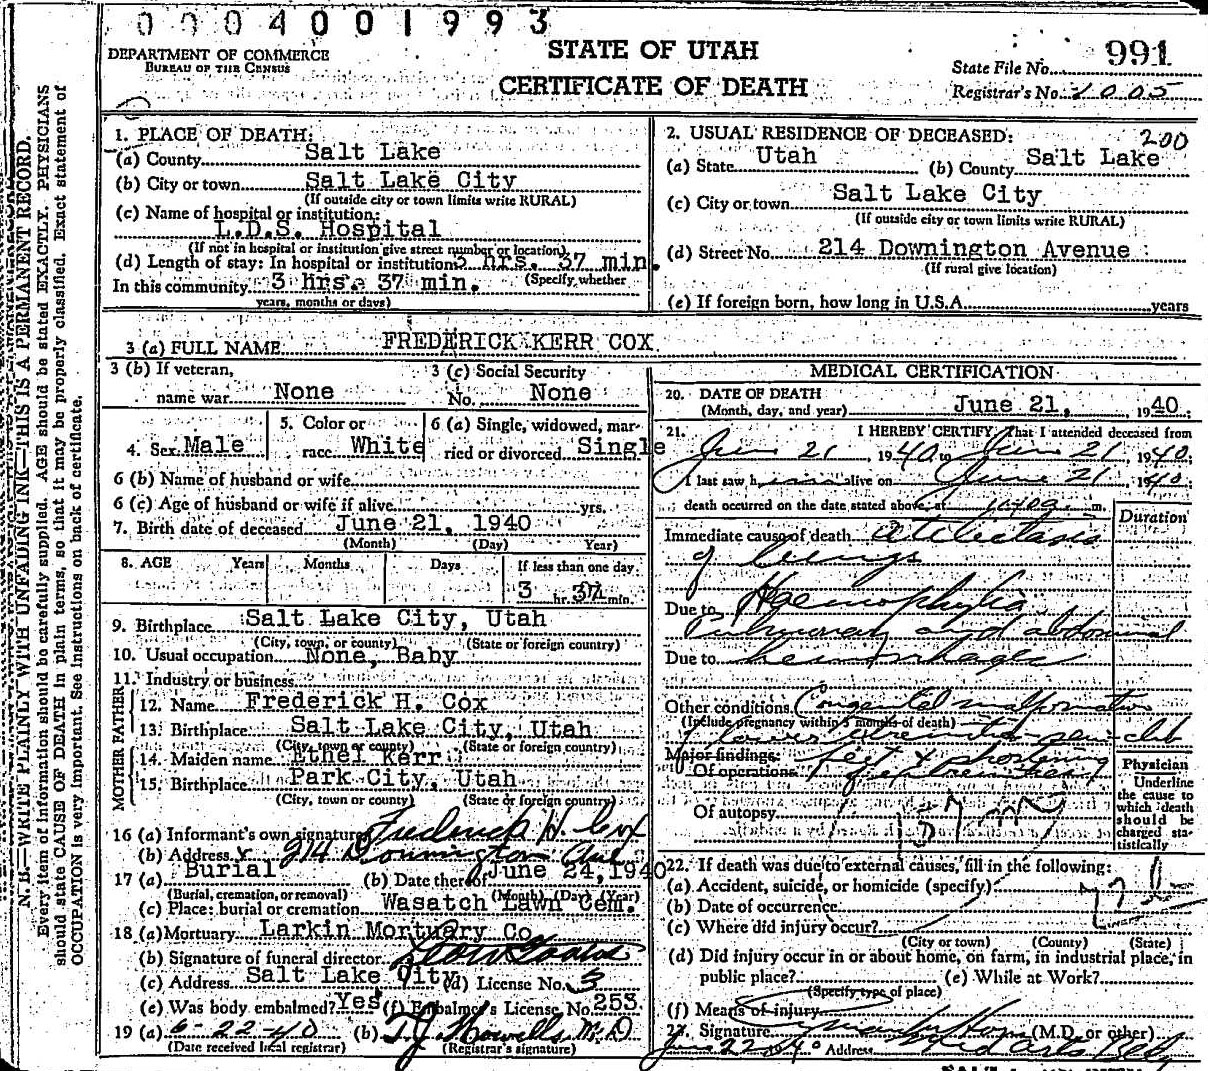 0004001993
DEPARTMENT OF COMMERCE
BUREAU OF THE CENSUS
STATE OF UTAH
CERTIFICATE OF DEATH
State File No. 991
Registrar's No. 1005
N. B.—WRITE PLAINLY WITH UNFADING INK—THIS IS A PERMANENT RECORD.
Every item of information should be carefully supplied. AGE should be stated EXACTLY. PHYSICIANS
should state CAUSE OF DEATH in plain terms, so that it may be properly classified. Exact statement of
OCCUPATION is very important. See instructions on back of certificate.
1. PLACE OF DEATH:
(a) County Salt Lake
(b) City or town Salt Lake City
(If outside city or town limits write RURAL)
(c) Name of hospital or institution:
L.D.S. Hospital
(If not in hospital or institution give street number or location)
(d) Length of stay: In hospital or institution 3 hrs. 37 min.
(Specify whether
In this community 3 hrs. 37 min.
years, months or days)
2. USUAL RESIDENCE OF DECEASED: 200
(a) State Utah (b) County Salt Lake
(c) City or town Salt Lake City
(If outside city or town limits write RURAL)
(d) Street No. 214 Downington Avenue
(If rural give location)
(e) If foreign born, how long in U.S.A. years
3 (a) FULL NAME FREDERICK KERR COX
3 (b) If veteran,
name war None
3 (c) Social Security
No. None
4. Sex Male
5. Color or
race White
6 (a) Single, widowed, mar-
ried or divorced Single
6 (b) Name of husband or wife
6 (c) Age of husband or wife if alive yrs.
7. Birth date of deceased June 21, 1940
(Month) (Day) Year)
8. AGE Years Months Days If less than one day
3 hr. 37 min.
9. Birthplace Salt Lake City, Utah
(City, town, or county) (State or foreign country)
10. Usual occupation None, Baby
11. Industry or business
FATHER
12. Name Frederick H. Cox
13. Birthplace Salt Lake City, Utah
(City, town or county) (State or foreign country)
MOTHER
14. Maiden name Ethel Kerr
15. Birthplace Park City, Utah
(City, town or county) (State or foreign country)
16 (a) Informant's own signature Frederick H. Cox
(b) Address 214 Downington Ave
17 (a) Burial (b) Date thereof June 24, 1940
(Burial, cremation, or removal) (Month) (Day) (Year)
(c) Place: burial or cremation Wasatch Lawn Cem.
18 (a) Mortuary Larkin Mortuary Co
(b) Signature of funeral director
(c) Address Salt Lake City (d) License No. 3
(e) Was body embalmed? Yes (f) Embalmer's License No. 253
19 (a) 6-22-40 (b) T J Howells M.D
(Date received local registrar) (Registrar's signature)
MEDICAL CERTIFICATION
20. DATE OF DEATH
(Month, day, and year) June 21, 1940.
21. I HEREBY CERTIFY, That I attended deceased from
June 21, 1940 to June 21, 1940.
I last saw him alive on June 21, 1940.
death occurred on the date stated above, at m.
Duration
Immediate cause of death Atelectasis
of lungs
Due to Haemophylia
Pulmonary and abdominal
Due to hemorrhages
Other conditions Congenital malformation
(Include pregnancy within 3 months of death)
lower club
Major findings: feet & shortening
Of operations
Of autopsy
Physician
Underline
the cause to
which death
should be
charged sta-
tistically
22. If death was due to external causes, fill in the following:
(a) Accident, suicide, or homicide (specify)
(b) Date of occurrence
(c) Where did injury occur?
(City or town) (County) (State)
(d) Did injury occur in or about home, on farm, in industrial place, in
public place? (e) While at Work?
(Specify type of place)
(f) Means of injury
Signature (M.D. or other)
Address Med Arts Bldg